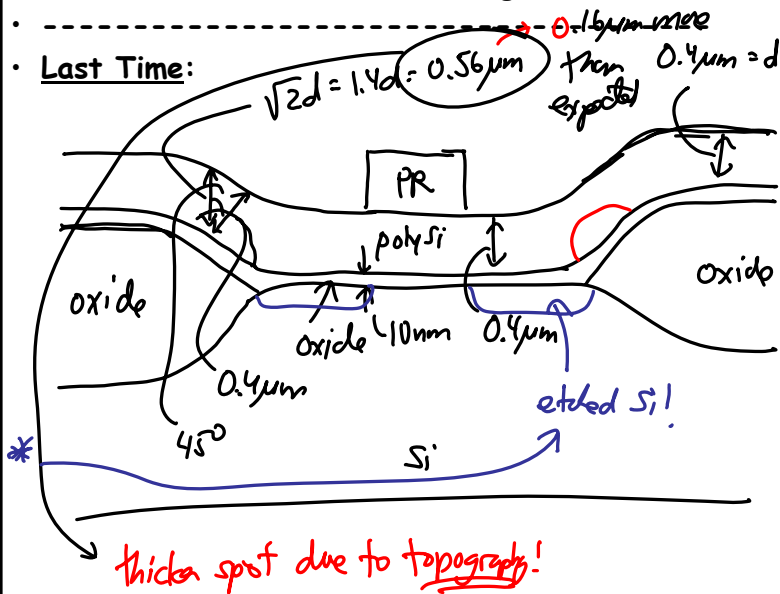 0.16μm more
Last Time:
√2d = 1.4d = 0.56μm
than
expected
0.4μm = d
PR
polysi
oxide
oxide
oxide
10nm
0.4μm
0.4μm
45°
etched Si!
*
Si
thicker spot due to topography!